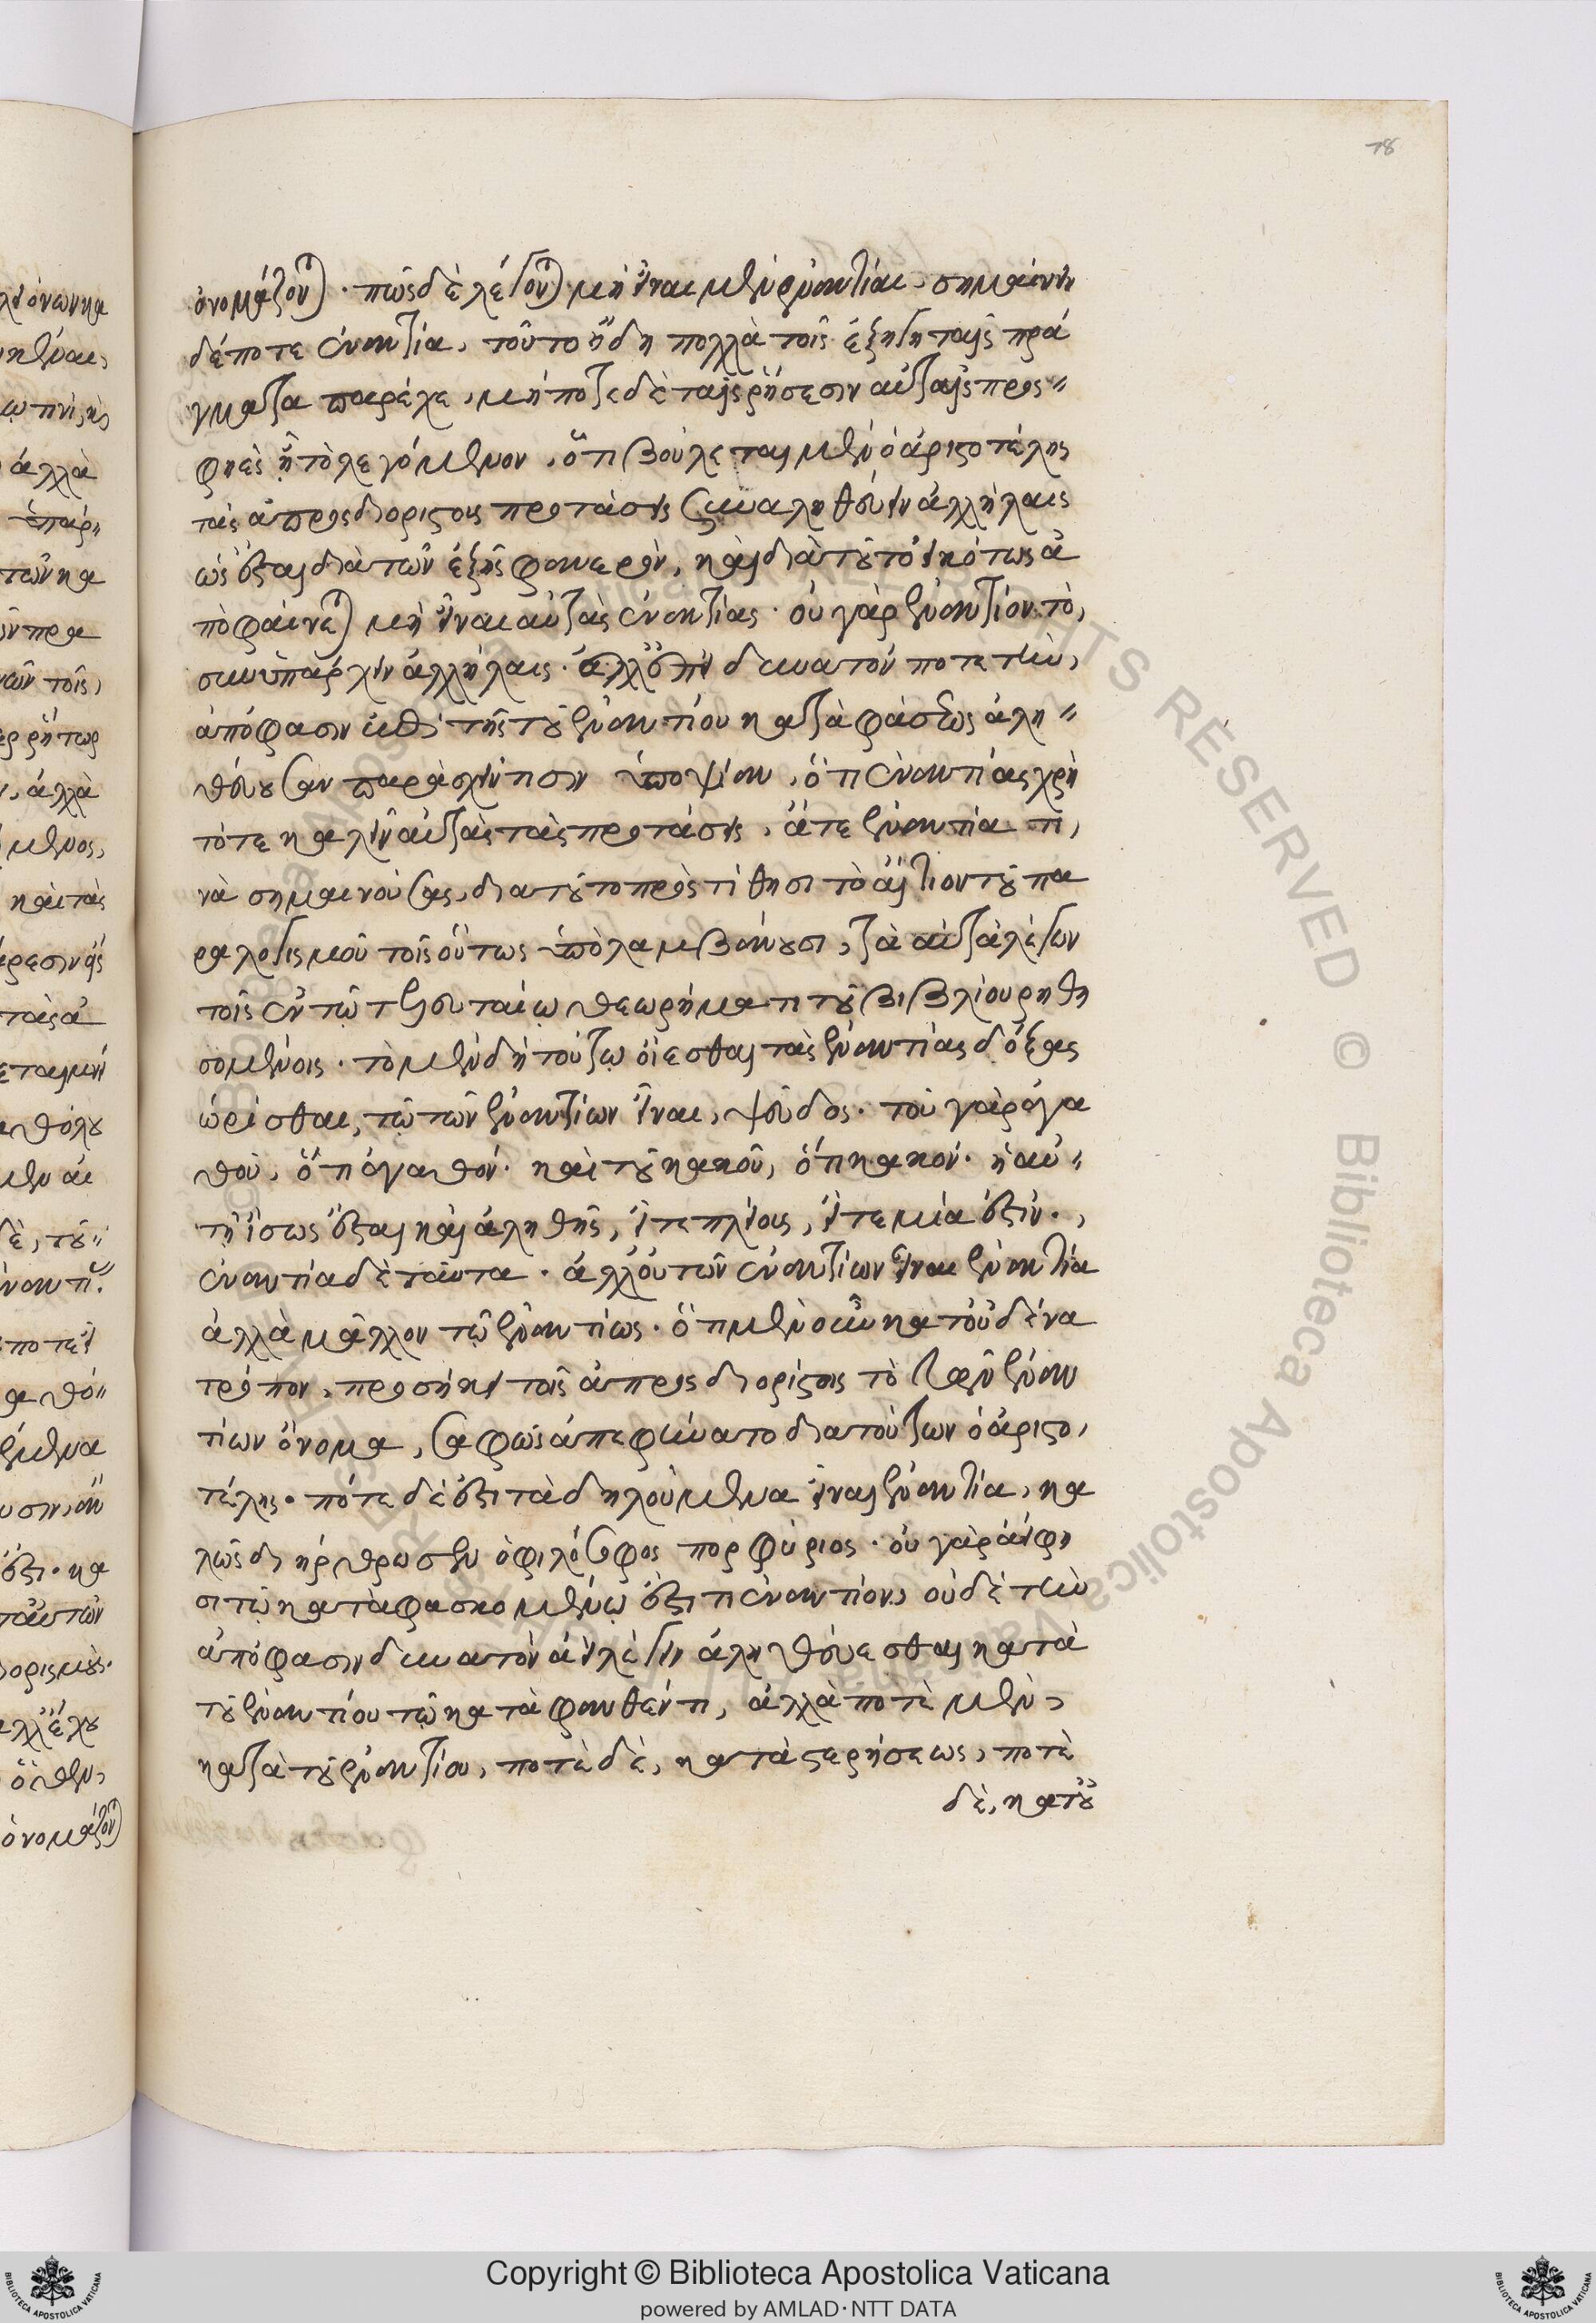 78
ὀνομάζονται. πῶς δὲ λέγονται μὴ εἶναι μὲν ἐναντίαι, σημαίνειν
δέ ποτε ἐναντία, τοῦτο ἤδη πολλὰ τοῖς ἐξηγηταῖς πρά
γματα παρέχει, μήποτε δὲ ταῖς ῥήσεσιν αὐταῖς προς
φυὲς ἦ τὸ λεγόμενον, ὅτι βούλεται μὲν ὁ ἀριστοτέλης
τὰς ἀπροςδιορίστους προτάσεις συναληθεύειν ἀλλήλαις
ὡς ἔσται διὰ τῶν ἑξῆς φανερὸν, καὶ διὰ τοῦτο εἰκότως ἀ
ποφαίνεται μὴ εἶναι αὐτὰς ἐναντίας. οὐ γὰρ ἐναντίον τὸ,
συνυπάρχειν ἀλλήλαις. ἀλλ' ἐπεὶ δυνατόν ποτε τὴν,
ἀπόφασιν μετὰ τῆς τοῦ ἐναντίου καταφάσεως ἀλη
θεύουσαν παρασχεῖν τισιν ὑποψίαν, ὅτι ἐναντίας χρὴ
τότε καλεῖν αὐτὰς τὰς προτάσεις, ἅτε ἐναντία τι,
νὰ σημαινούσας, διατοῦτο προςτίθησι τὸ αἴτιον τοῦ πα
ραλογισμοῦ τοῖς οὕτως ὑπολαμβάνουσι, τὰ αὐτὰ λέγων
τοῖς ἐν τῷ τελευταίῳ θεωρήματι τοῦ βιβλίου ῥηθη
σομένοις. τὸ μὲν δὴ τούτῳ οἴεσθαι τὰς ἐναντίας δόξας
ὡρίσθαι, τῷ τῶν ἐναντίων εἶναι, ψεῦδος. τοῦ γὰρ ἀγα
θοῦ, ὅτι ἀγαθόν. καὶ τοῦ κακοῦ, ὅτι κακόν. ἡ αὐ
τὴ ἴσως ἔσται καὶ ἀληθῆς, εἴτε πλείους, εἴτε μία ἐστίν.,
ἐναντία δὲ ταῦτα. ἀλλ' οὐ τῶν ἐναντίων εἶναι ἐναντία
ἀλλὰ μᾶλλον τῷ ἐναντίως. ὅτι μὲν οὖν κατ' οὐδένα
τρόπον, προσήκει τοῖς ἀπροςδιορίστοις τὸ τῶν ἐναν
τίων ὄνομα, σαφῶς ἀπεφήνατο διατούτων ὁ ἀριστο,
τέλης. πότε δέ ἐστι τὰ δηλούμενα εἶναι ἐναντία, κα
λῶς διήρθρωσεν ὁ φιλόσοφος πορφύριος. οὐ γὰρ ἀεί φη
σι τῷ καταφασκομένῳ ἐστί τι ἐναντίον, οὐδὲ τὴν
ἀπόφασιν δυνατὸν ἀεὶ λέγειν ἀληθεύεσθαι κατὰ
τοῦ ἐναντίου τῷ καταφανθέντι, ἀλλὰ ποτὲ μὲν,
κατὰ τοῦ ἐναντίου, ποτὲ δὲ, κατὰ στερήσεως, ποτὲ
δὲ, κατ' οὐ